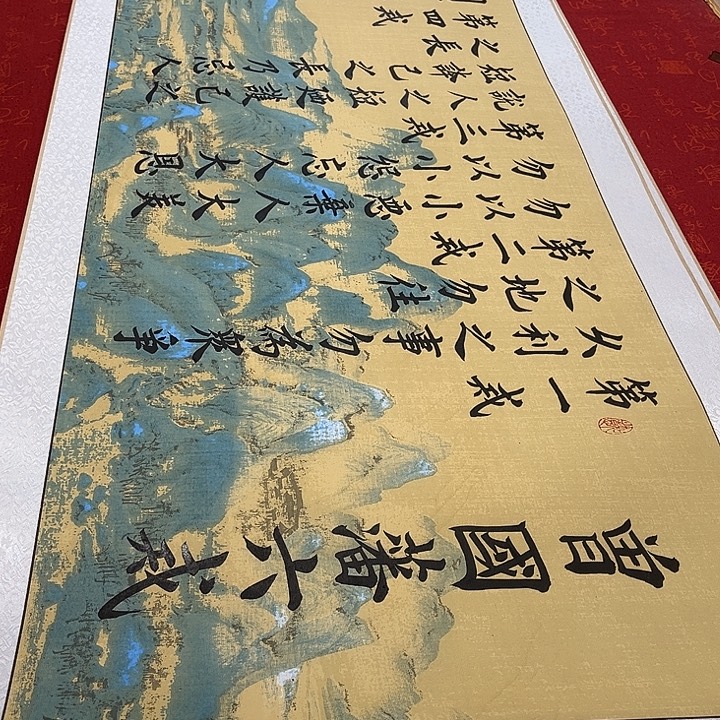 曾國藩六戒
第一戒
久利之事勿為衆爭
之地勿往
第二戒
勿以小惡棄人大義
勿以小怨忘人大恩
第三戒
說人之短護己之
短誇己之長乃忌人
之長
第四戒